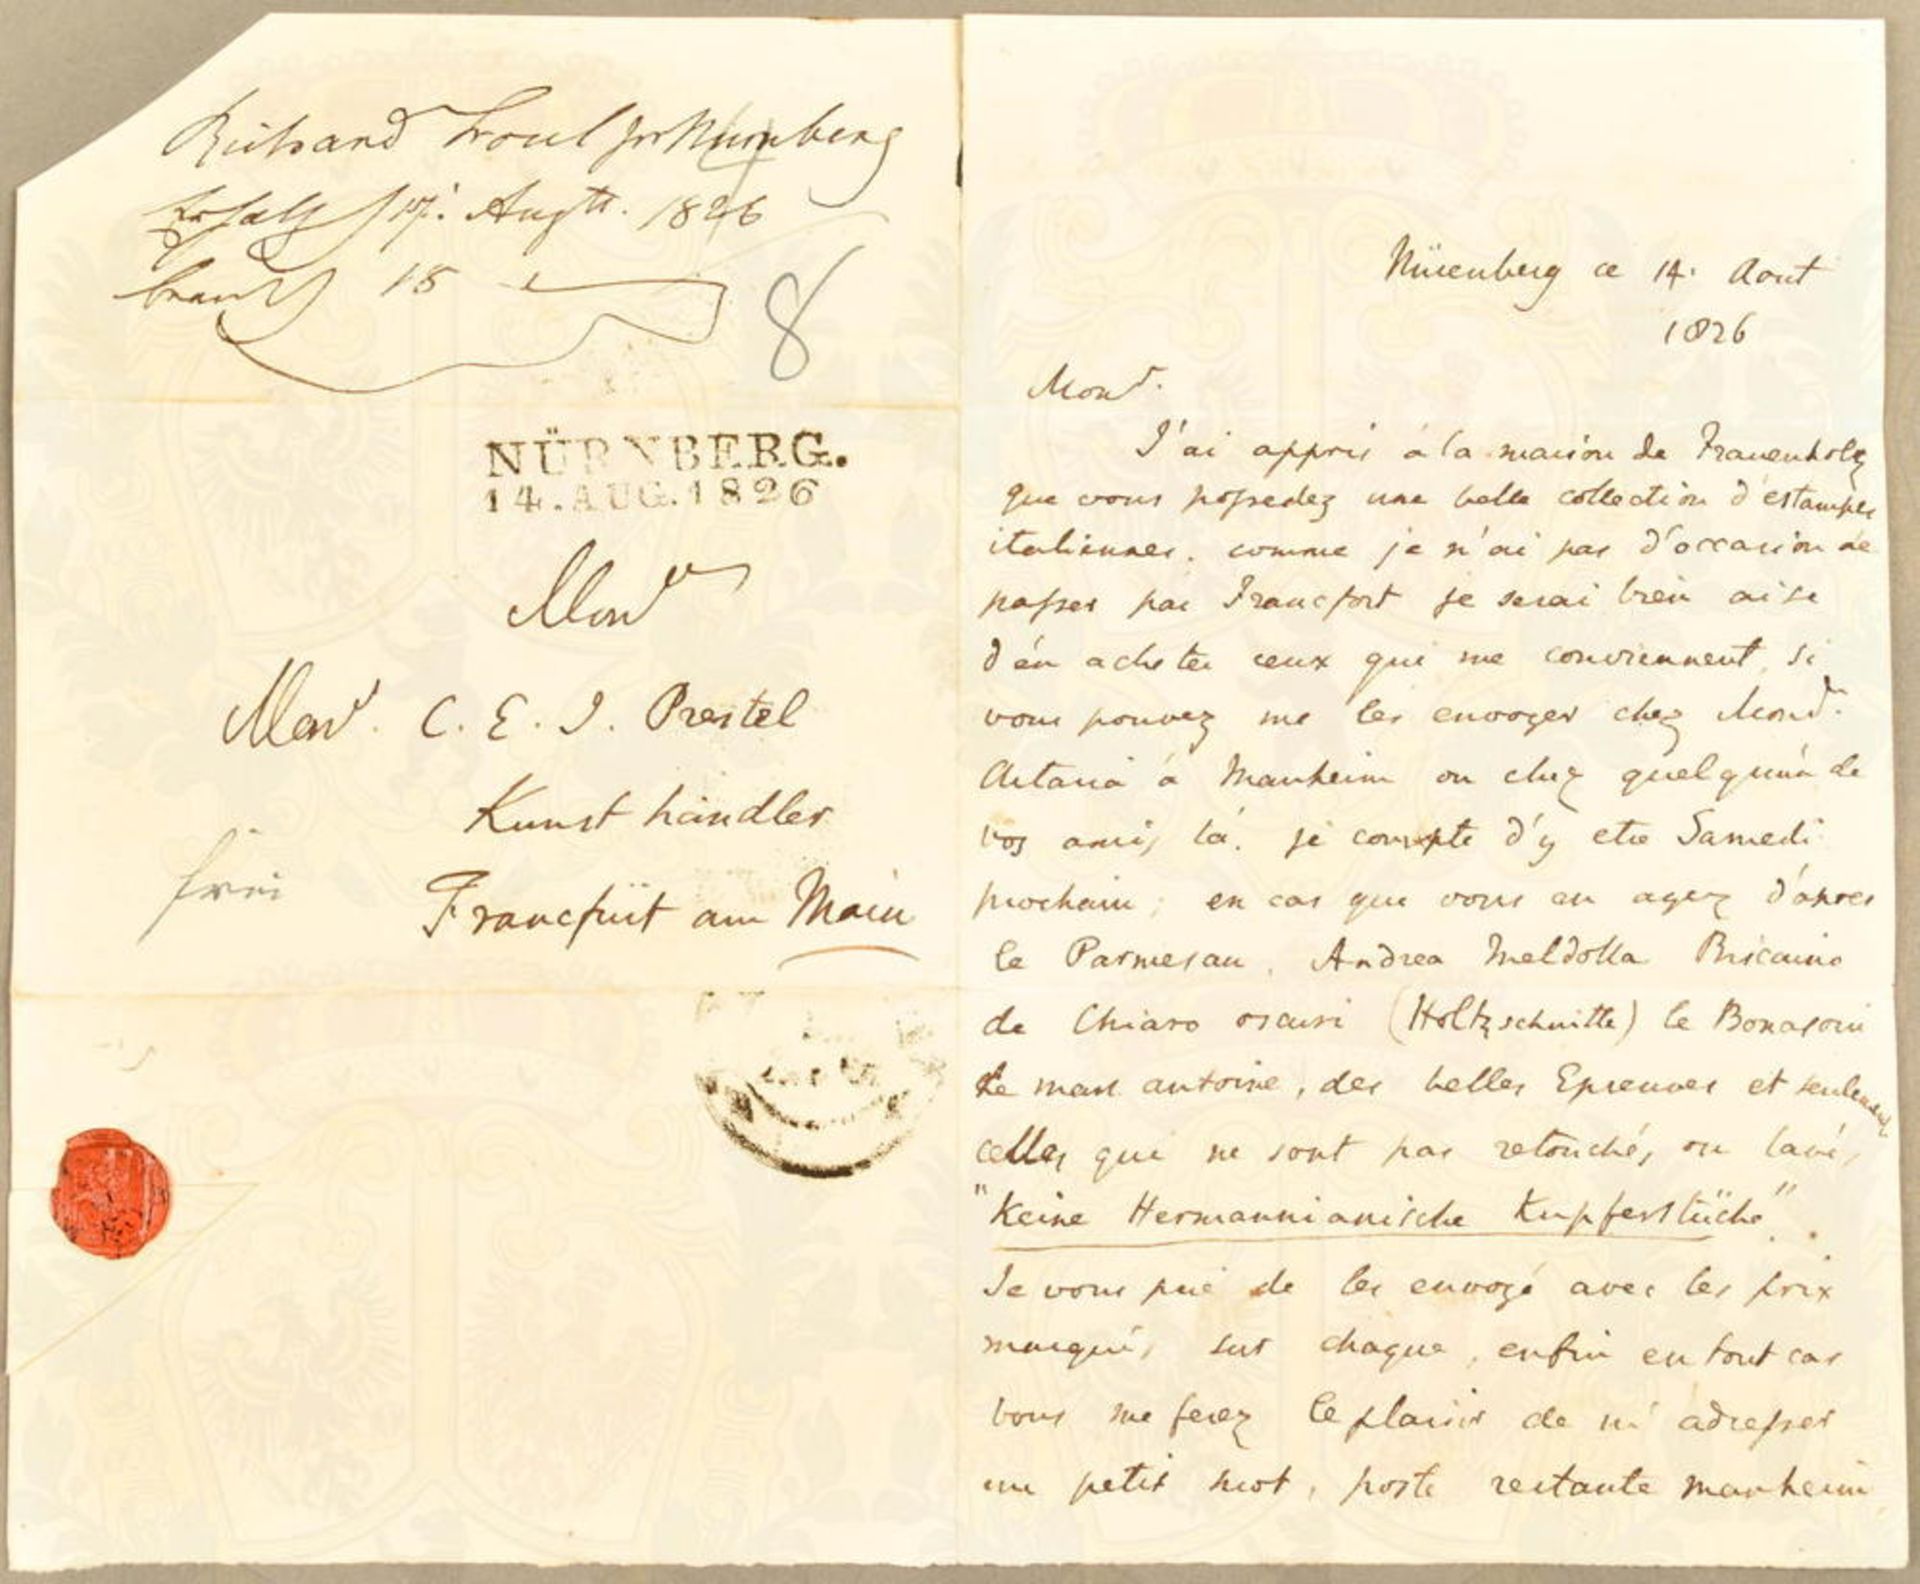 Richard Ford für Nürnberg
Erhalts 17. Augtt. 1826
beant 18
8
NÜRNBERG.
14.AUG.1826
Monsr
Monsr. C. E. J. Prestel
Kunst händler
frei
Francfurt am Main
Nürenberg ce 14. Aout
1826
Monsr.
J'ai appris à la maison de Frauenholz
que vous possedez une belle collection d'estampes
italiennes. comme je n'ai pas d'occasion de
passer par Francfort je serai bien aise
d'én acheter ceux qui me conviennent, si
vous pouvez me les envoyer chez Monsr.
Artaria á Manheim ou chez quelqu'un de
vos amis là. je compte d'y etre Samedi
prochain; en cas que vous en ayez d'apres
le Parmesan, Andrea Meldolla Biscaino
de Chiaro oscuri (Holtzschnitte) le Bonasoni
le marc antoine, des belles Epreuves et seulement
celles qui ne sont pas retouchés ou lavés
"Keine Hermannianische Kupferstüche".
Je vous prie de les envoyé avec les prix
marqués sur chaque, enfin en tout cas
vous me ferez le plaisir de m'adresser
un petit mot, poste restante manheim